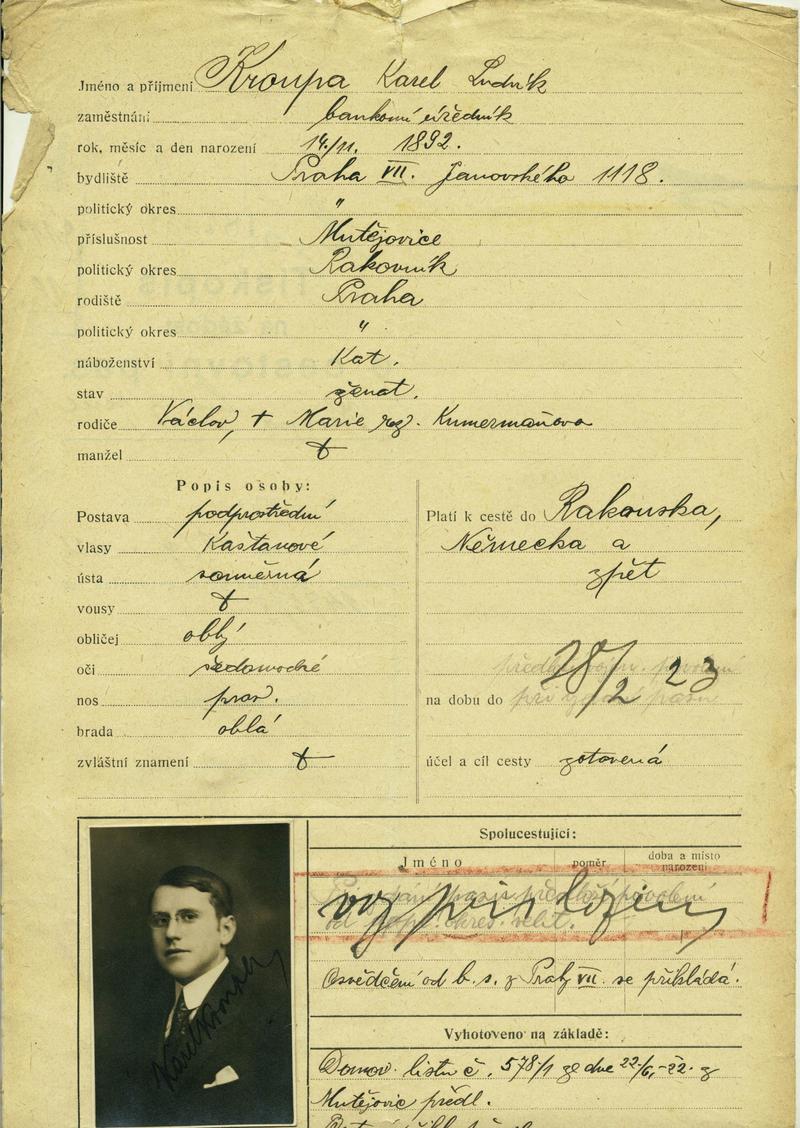 Jméno a příjmení Kroupa Karel Ludvík
zaměstnání bankovní úředník
rok, měsíc a den narození 14./11. 1892.
bydliště Praha VII. Janovského 1118.
politický okres "
příslušnost Mutějovice
politický okres Rakovník
rodiště Praha
politický okres "
náboženství Kat.
stav ženat.
rodiče Václav, + Marie roz.
manžel +
Popis osoby:
Postava podprostřední
vlasy kaštanové
ústa souměrná
vousy +
obličej oblý
oči šedomodré
nos prav.
brada oblá
zvláštní znamení +
Platí k cestě do Rakouska,
Německa a
zpět
na dobu do 28/2 23
účel a cíl cesty
Spolucestující:
Jméno poměr doba a místo narození
Osvědčení od b. s. z Prahy VII se přikládá.
Vyhotoveno na základě:
Domov. listu č. 578/1 ze dne 22/6.-22. z
Mutějovic předl.
Karel Kroupa